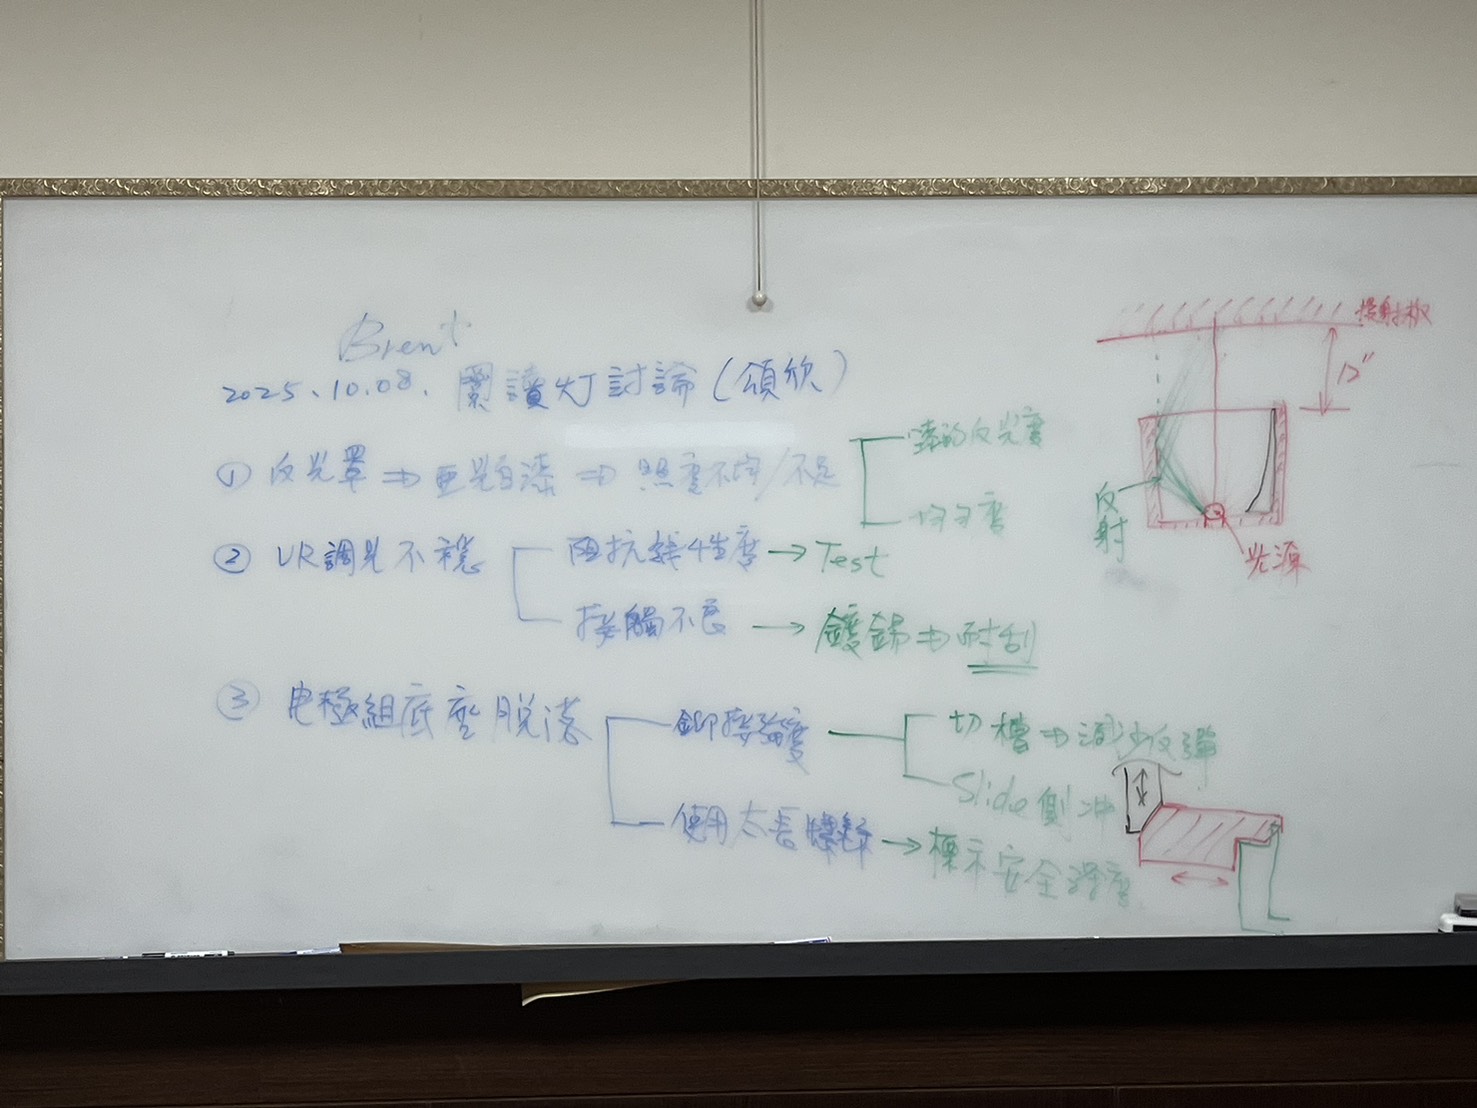 Brent
2025.10.08. 閱讀灯討論(頌欣)
① 反光罩 ⇒ 亜光白漆 ⇒ 照度不均/不足
漆的反光度
均勻度
② VR調光不穩
阻抗線性度 → Test
接觸不良 → 鍍錫 ⇒ 耐刮
③ 电極組底座脱落
鉚接強度
切槽 ⇒ 減少反彈
Slide 側冲
使用太長 → 標示安全深度
投射板
12"
反射
光源